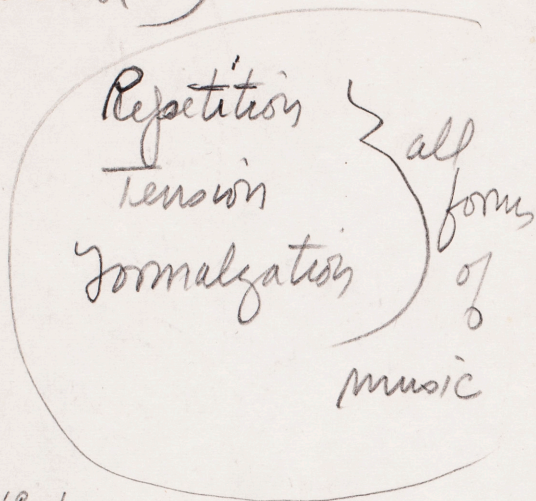 Repetition
Tension
Formalization
all
forms
of
music